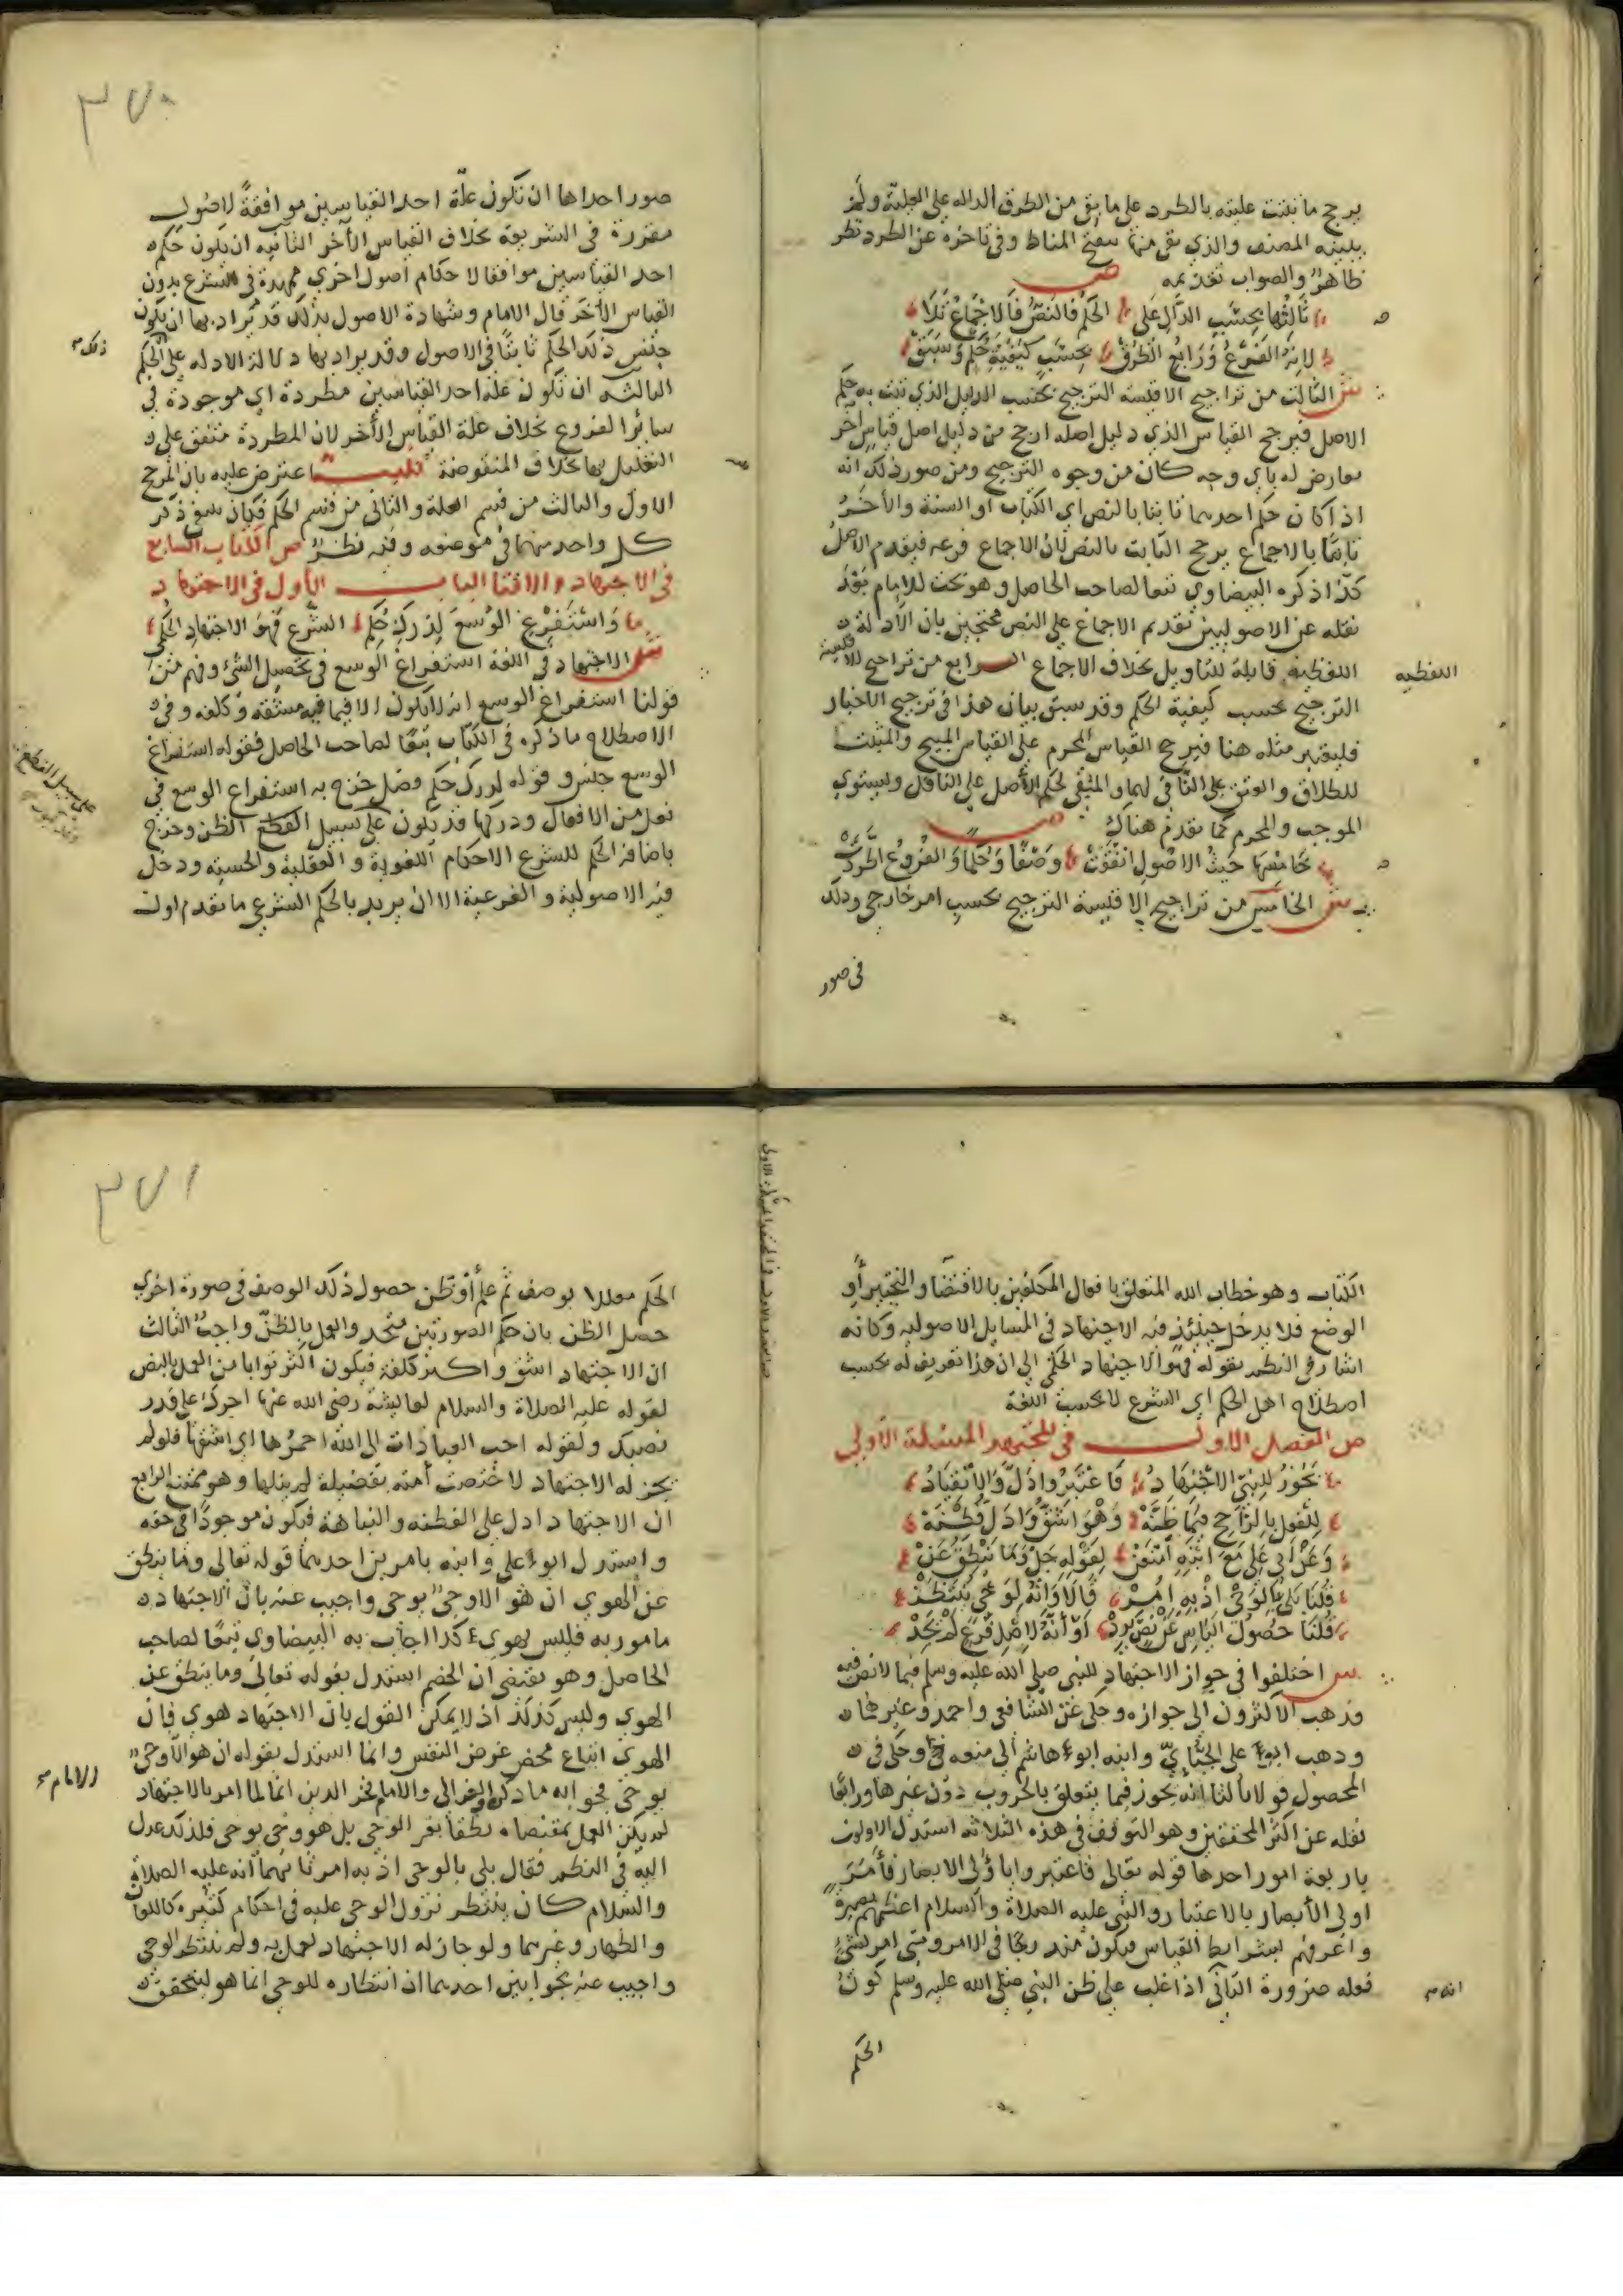 يرجح ما ثبتت عليته بالطرد على ما بقي من الطرق الداله على العلية ولم
يبينه المصنف والذي بقي منها تنقيح المناط وفي تاخره عن الطرد نظر
ظاهر والصواب تقديمه ص
ثالثها بحسب الدال على الحكم فالنص فالاجماع تلا
لانه الفرع ورابع الطرق بحسب كيفية حكم وسبق
ش الثالث من تراجيح الاقيسة الترجيح بحسب الدليل الذي ثبت به حكم
الاصل فيرجح القياس الذي دليل اصله ارجح من دليل اصل قياس اخر
معارض له باي وجه كان من وجوه الترجيح ومن صور ذلك انه
اذا كان حكم احدهما ثابتا بالنص اي الكتاب او السنة والأخر
ثابتا بالاجماع يرجح الثابت بالنص لان الاجماع فرعه فيقدم الاصل
كذا ذكره البيضاوي تبعا لصاحب الحاصل وهو بحث للامام بعد
نقله عن الاصوليين تقديم الاجماع على النص محتجين بان الأدلة
اللفظيه قابلة للتاويل بخلاف الاجماع الرابع من تراجيح الاقيسة
اللفظيه
الترجيح بحسب كيفية الحكم وقد سبق بيان هذا في ترجيح الاخبار
فليعتبر مثله هنا فيرجح القياس المحرم على القياس المبيح والمثبت
للطلاق والعتق على النافي لهما والمبقي لحكم الأصل على الناقل ويستوي
الموجب والمحرم كما تقدم هناك ص
خامسها حيث الاصول اتفقت وصفا وحكما والفروع اطردت
ش الخامس من تراجيح الاقيسة الترجيح بحسب امر خارجي وذلك
في صور
٣٧٠
صور احداها ان تكون علة احد القياسين موافقة لاصول
مقررة في الشريعة بخلاف القياس الآخر الثانيه ان يكون حكم
احد القياسين موافقا لاحكام اصول اخري ممهدة في الشرع بدون
القياس الأخر قال الامام وشهادة الاصول بذلك قد يراد بها ان يكون
جنس ذلك الحكم ثابتا في الاصول وقد يراد بها دلالة الادله على الحكم
ذلك
الثالثه ان تكون علة احد القياسين مطردة اي موجودة في
سائر الفروع بخلاف علة القياس الأخر لان المطردة متفق على
التعليل بها بخلاف المنقوضة تنبيه اعترض عليه بان المرجح
الاول والثالث من قسم العلة والثاني من قسم الحكم فكان ينبغي ذكر
كل واحد منهما في موضعه وفيه نظر ص الكتاب السابع
في الاجتهاد والافتا الباب الأول في الاجتهاد
واستفرغ الوسع لدرك حكم الشرع فهو الاجتهاد الحكمي
ش الاجتهاد في اللغة استفراغ الوسع في تحصيل الشئ وفهم من
قولنا استفراغ الوسع انه لا يكون الا فيما فيه مشقه وكلفه وفي
الاصطلاح ما ذكره في الكتاب تبعا لصاحب الحاصل فقوله استفراغ
الوسع جنس وقوله لدرك حكم فصل خرج به استفراغ الوسع في
على سبيل القطع
فعل من الافعال ودركها قد تكون على سبيل القطع الظن وخرج
باضافة الحكم للشرع الاحكام اللغوية والعقلية والحسيه ودخل
فيه الاصولية والفرعية الا ان يريد بالحكم الشرعي ما تقدم اول
الكتاب وهو خطاب الله المتعلق بافعال المكلفين بالاقتضا والتخيير أو
الوضع فلا يدخل حينئذ فيه الاجتهاد في المسايل الاصوليه وكانه
اشار في النظم بقوله فهو الاجتهاد الحكمي الى ان هذا تعريف له بحسب
اصطلاح اهل الحكم اي الشرع لا بحسب اللغة
ص الفصل الاول في المجتهد المسئلة الأولى
يجوز للنبي الاجتهاد فاعتبروا دل والانقياد
للقول بالراجح فيما ظنه وهو اشق وادل فطنه
وعن ابي علي مع ابنه امتنعن لقوله جل وما ينطق عن
قلنا بلى بالوحي اذ به امر قالا وانه لوحي ينتظر
قلنا حصول الياس عن نص يرد او أنه لاصل فرع لم يجد
ش اختلفوا في جواز الاجتهاد للنبي صلى الله عليه وسلم فيما لا نص فيه
فذهب الاكثرون الى جوازه وحكي عن الشافعي واحمد وغيرهما
وذهب ابو علي الجبائي وابنه ابو هاشم الى منعه وحكي في
المحصول قولا ثالثا انه يجوز فيما يتعلق بالحروب دون غيرها ورابعا
نقله عن اكثر المحققين وهو التوقف في هذه الثلاثه استدل الاولون
باربعة امور احدها قوله تعالى فاعتبروا يا أولي الابصار فأمر
اولى الأبصار بالاعتبار والنبي عليه الصلاة والسلام اعظمهم بصيرة
واعرفهم بشرايط القياس فيكون مندرجا في الامر ومتى امر بشئ
فعله ضرورة الثاني اذا غلب على ظن النبي صلى الله عليه وسلم كون
الحكم
٣٧١
الحكم معللا بوصف ثم علم أو ظن حصول ذلك الوصف في صورة اخرى
حصل الظن بان حكم الصورتين متحد والعمل بالظن واجب الثالث
ان الاجتهاد اشق واكثر كلفة فيكون اكثر ثوابا من العمل بالنص
لقوله عليه الصلاة والسلام لعايشة رضي الله عنها اجرك على قدر
نصبك ولقوله احب العبادات الى الله احمزها اي اشقها فلو لم
يجز له الاجتهاد لاختصت أمته بفضيلة لم ينلها وهو ممتنع الرابع
ان الاجتهاد ادل على الفطنه والنباهة فيكون موجودا في حقه
واستدل ابو علي وابنه بامرين احدهما قوله تعالى وما ينطق
عن الهوي ان هو الا وحي يوحي واجيب عنه بان الاجتهاد
مامور به فليس بهوي كذا اجاب به البيضاوي تبعا لصاحب
الحاصل وهو يقتضي ان الخصم استدل بقوله تعالى وما ينطق عن
الهوي وليس كذلك اذ لا يمكن القول بان الاجتهاد هوي فان
الهوي اتباع محض غرض النفس وانما استدل بقوله ان هو الا وحي
يوحي فجوابه ما ذكره الغزالي والامام فخر الدين انما لما امر بالاجتهاد
الامام
لم يكن العمل بمقتضاه نطقا بغير الوحي بل هو وحي يوحي فلذلك عدل
اليه في النظم فقال بلى بالوحي اذ به امر ثانيهما أنه عليه الصلاة
والسلام كان ينتظر نزول الوحي عليه في احكام كثيره كاللعان
والظهار وغيرهما ولو جاز له الاجتهاد لعمل به ولم ينتظر الوحي
واجيب عنه بجوابين احدهما ان انتظاره للوحي انما هو ليتحقق